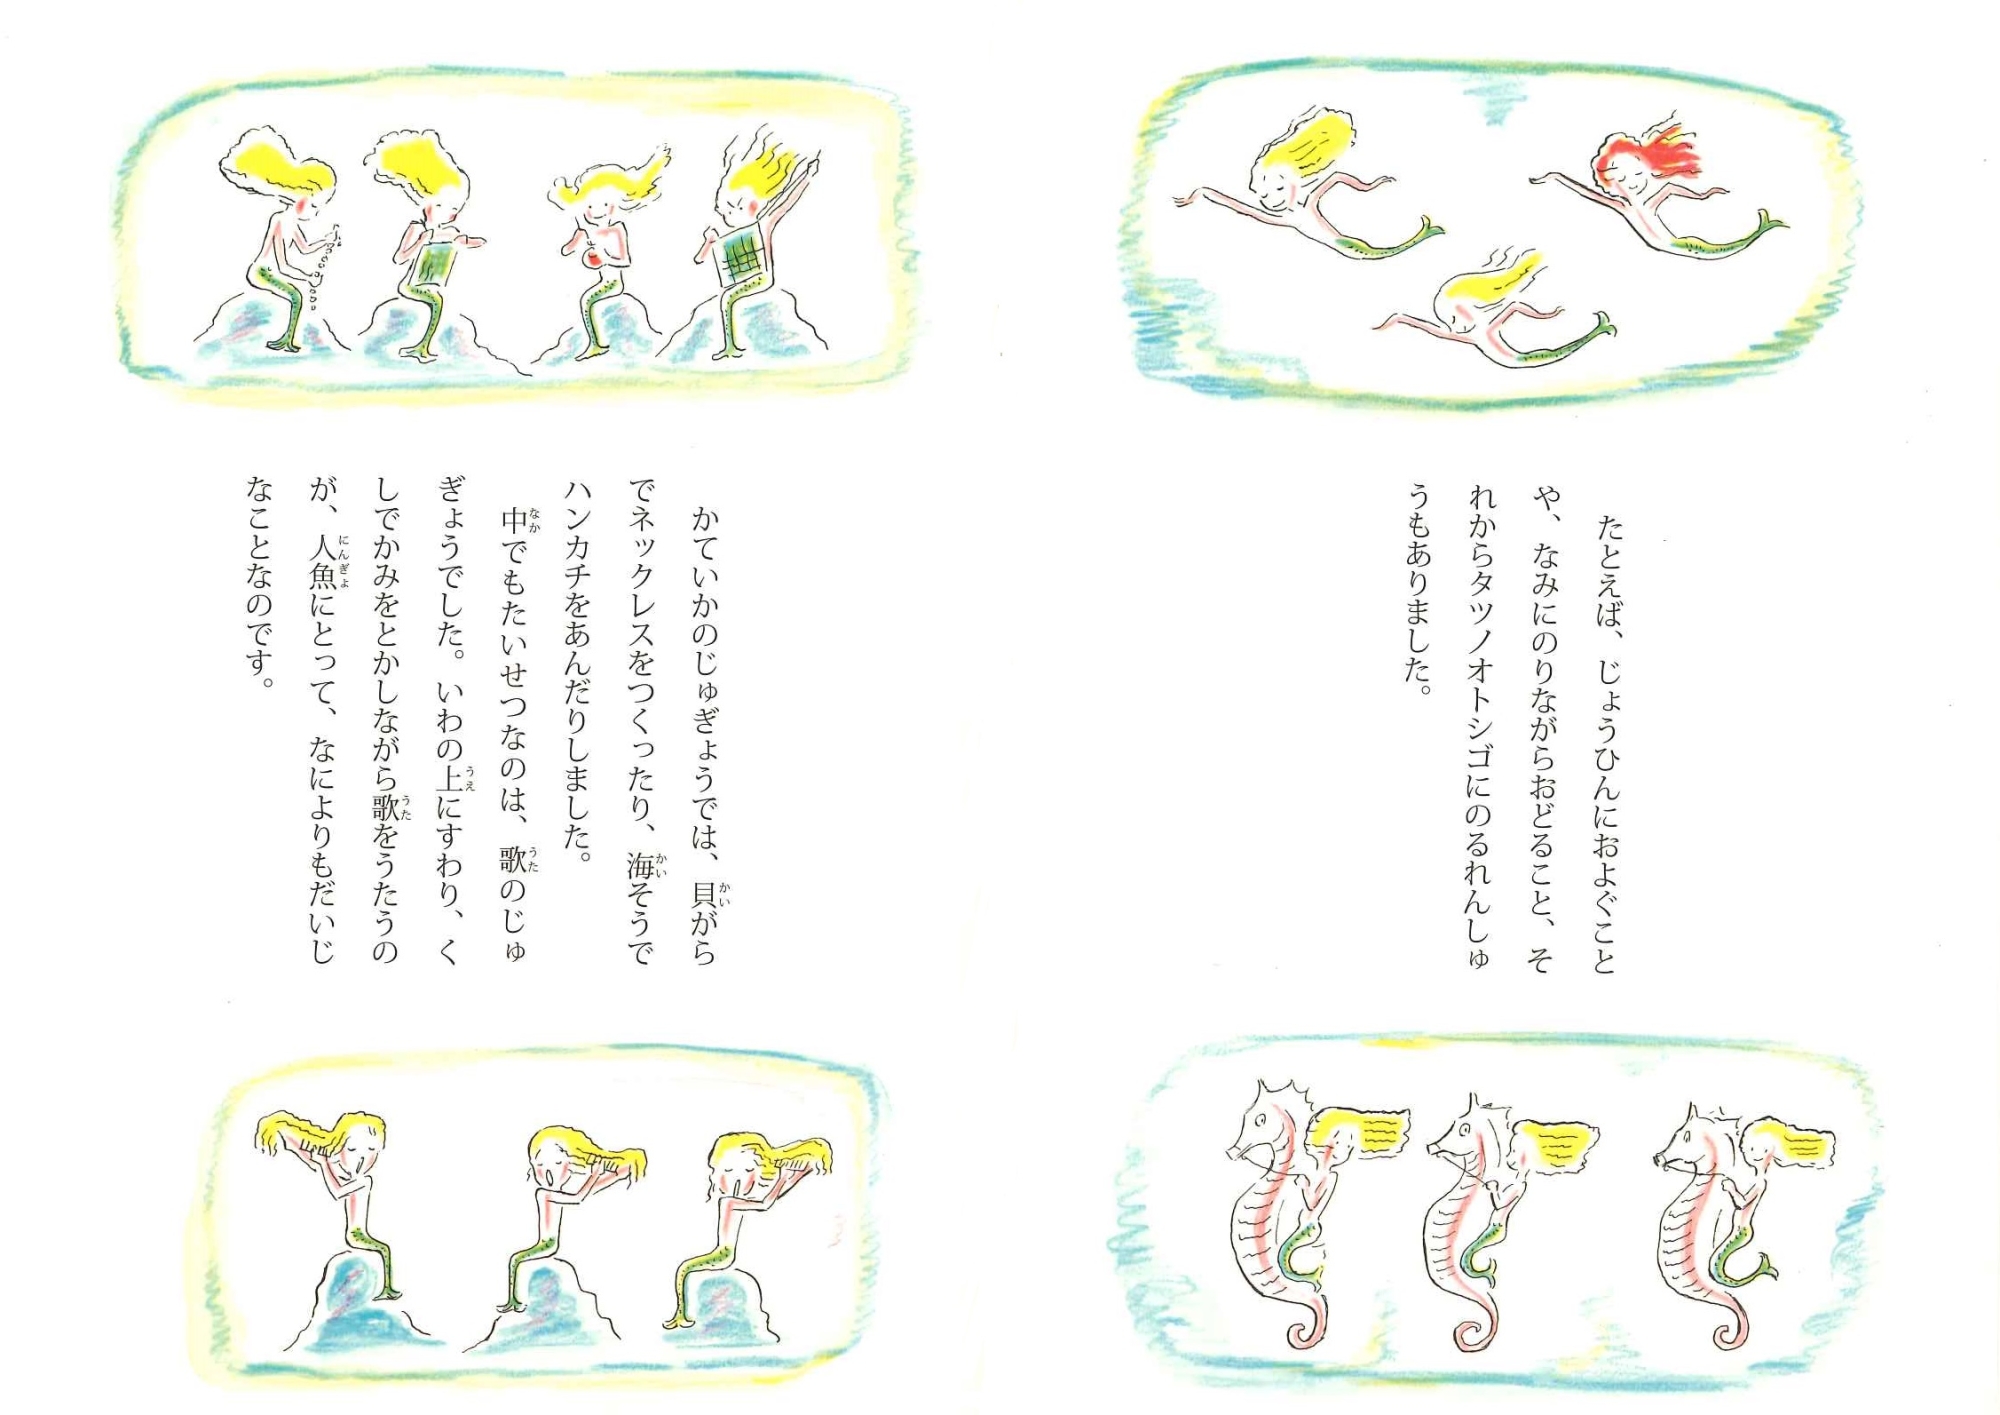 たとえば、じょうひんにおよぐこと
や、なみにのりながらおどること、そ
れからタツノオトシゴにのるれんしゅ
うもありました。
かていかのじゅぎょうでは、貝がら
でネックレスをつくったり、海そうで
ハンカチをあんだりしました。
中でもたいせつなのは、歌のじゅ
ぎょうでした。いわの上にすわり、く
しでかみをとかしながら歌をうたうの
が、人魚にとって、なによりもだいじ
なことなのです。